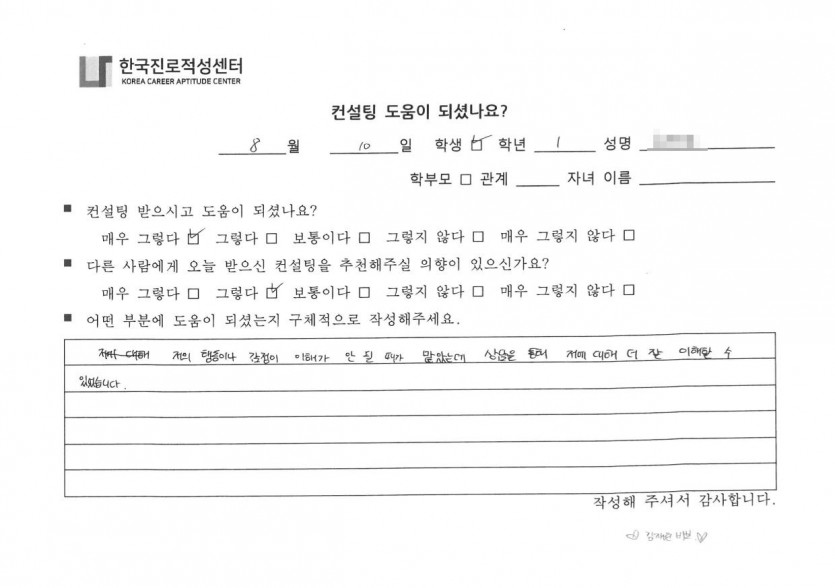 한국진로적성센터
KOREA CAREER APTITUDE CENTER
컨설팅 도움이 되셨나요?
8 월 10 일 학생 ☑ 학년 1 성명
학부모 □ 관계 자녀 이름
■ 컨설팅 받으시고 도움이 되셨나요?
매우 그렇다 ☑ 그렇다 □ 보통이다 □ 그렇지 않다 □ 매우 그렇지 않다 □
■ 다른 사람에게 오늘 받으신 컨설팅을 추천해주실 의향이 있으신가요?
매우 그렇다 □ 그렇다 ☑ 보통이다 □ 그렇지 않다 □ 매우 그렇지 않다 □
■ 어떤 부분에 도움이 되셨는지 구체적으로 작성해주세요.
저의 행동이나 감정이 이해가 안 될 때가 많았는데 상담을 통해 저에 대해 더 잘 이해할 수
있었습니다.
작성해 주셔서 감사합니다.